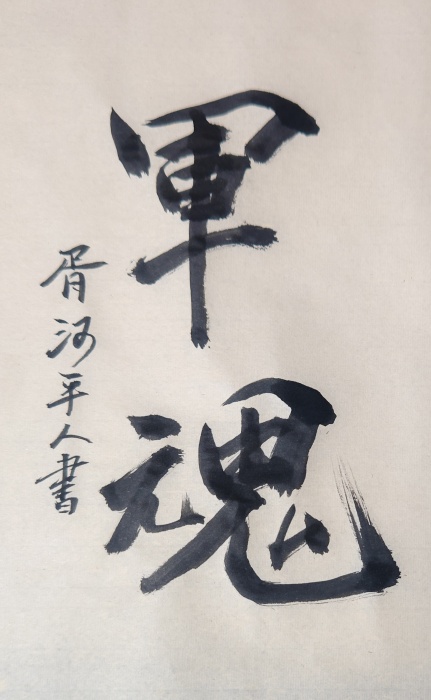 軍魂
胥河平人書